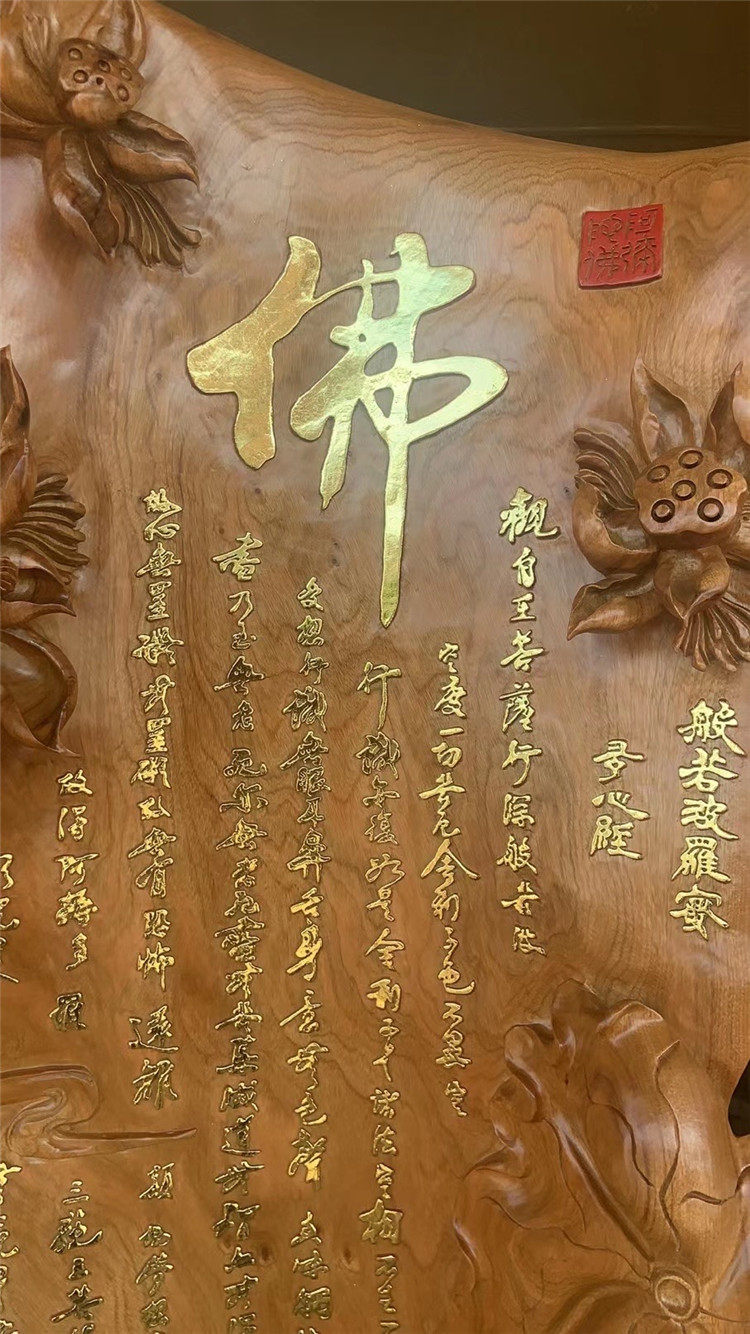 佛
阿彌陀佛
般若波羅蜜
多心經
觀自在菩薩行深般若波
空度一切苦厄舍利子色不異空
行識亦復如是舍利子是諸法空相不生
受想行識無眼耳鼻舌身意無色聲
盡乃至無老死亦無老死盡無苦集滅道無智亦無得
故心無罣礙無罣礙故無有恐怖遠離
顛倒夢想
故得阿耨多羅
三藐三菩